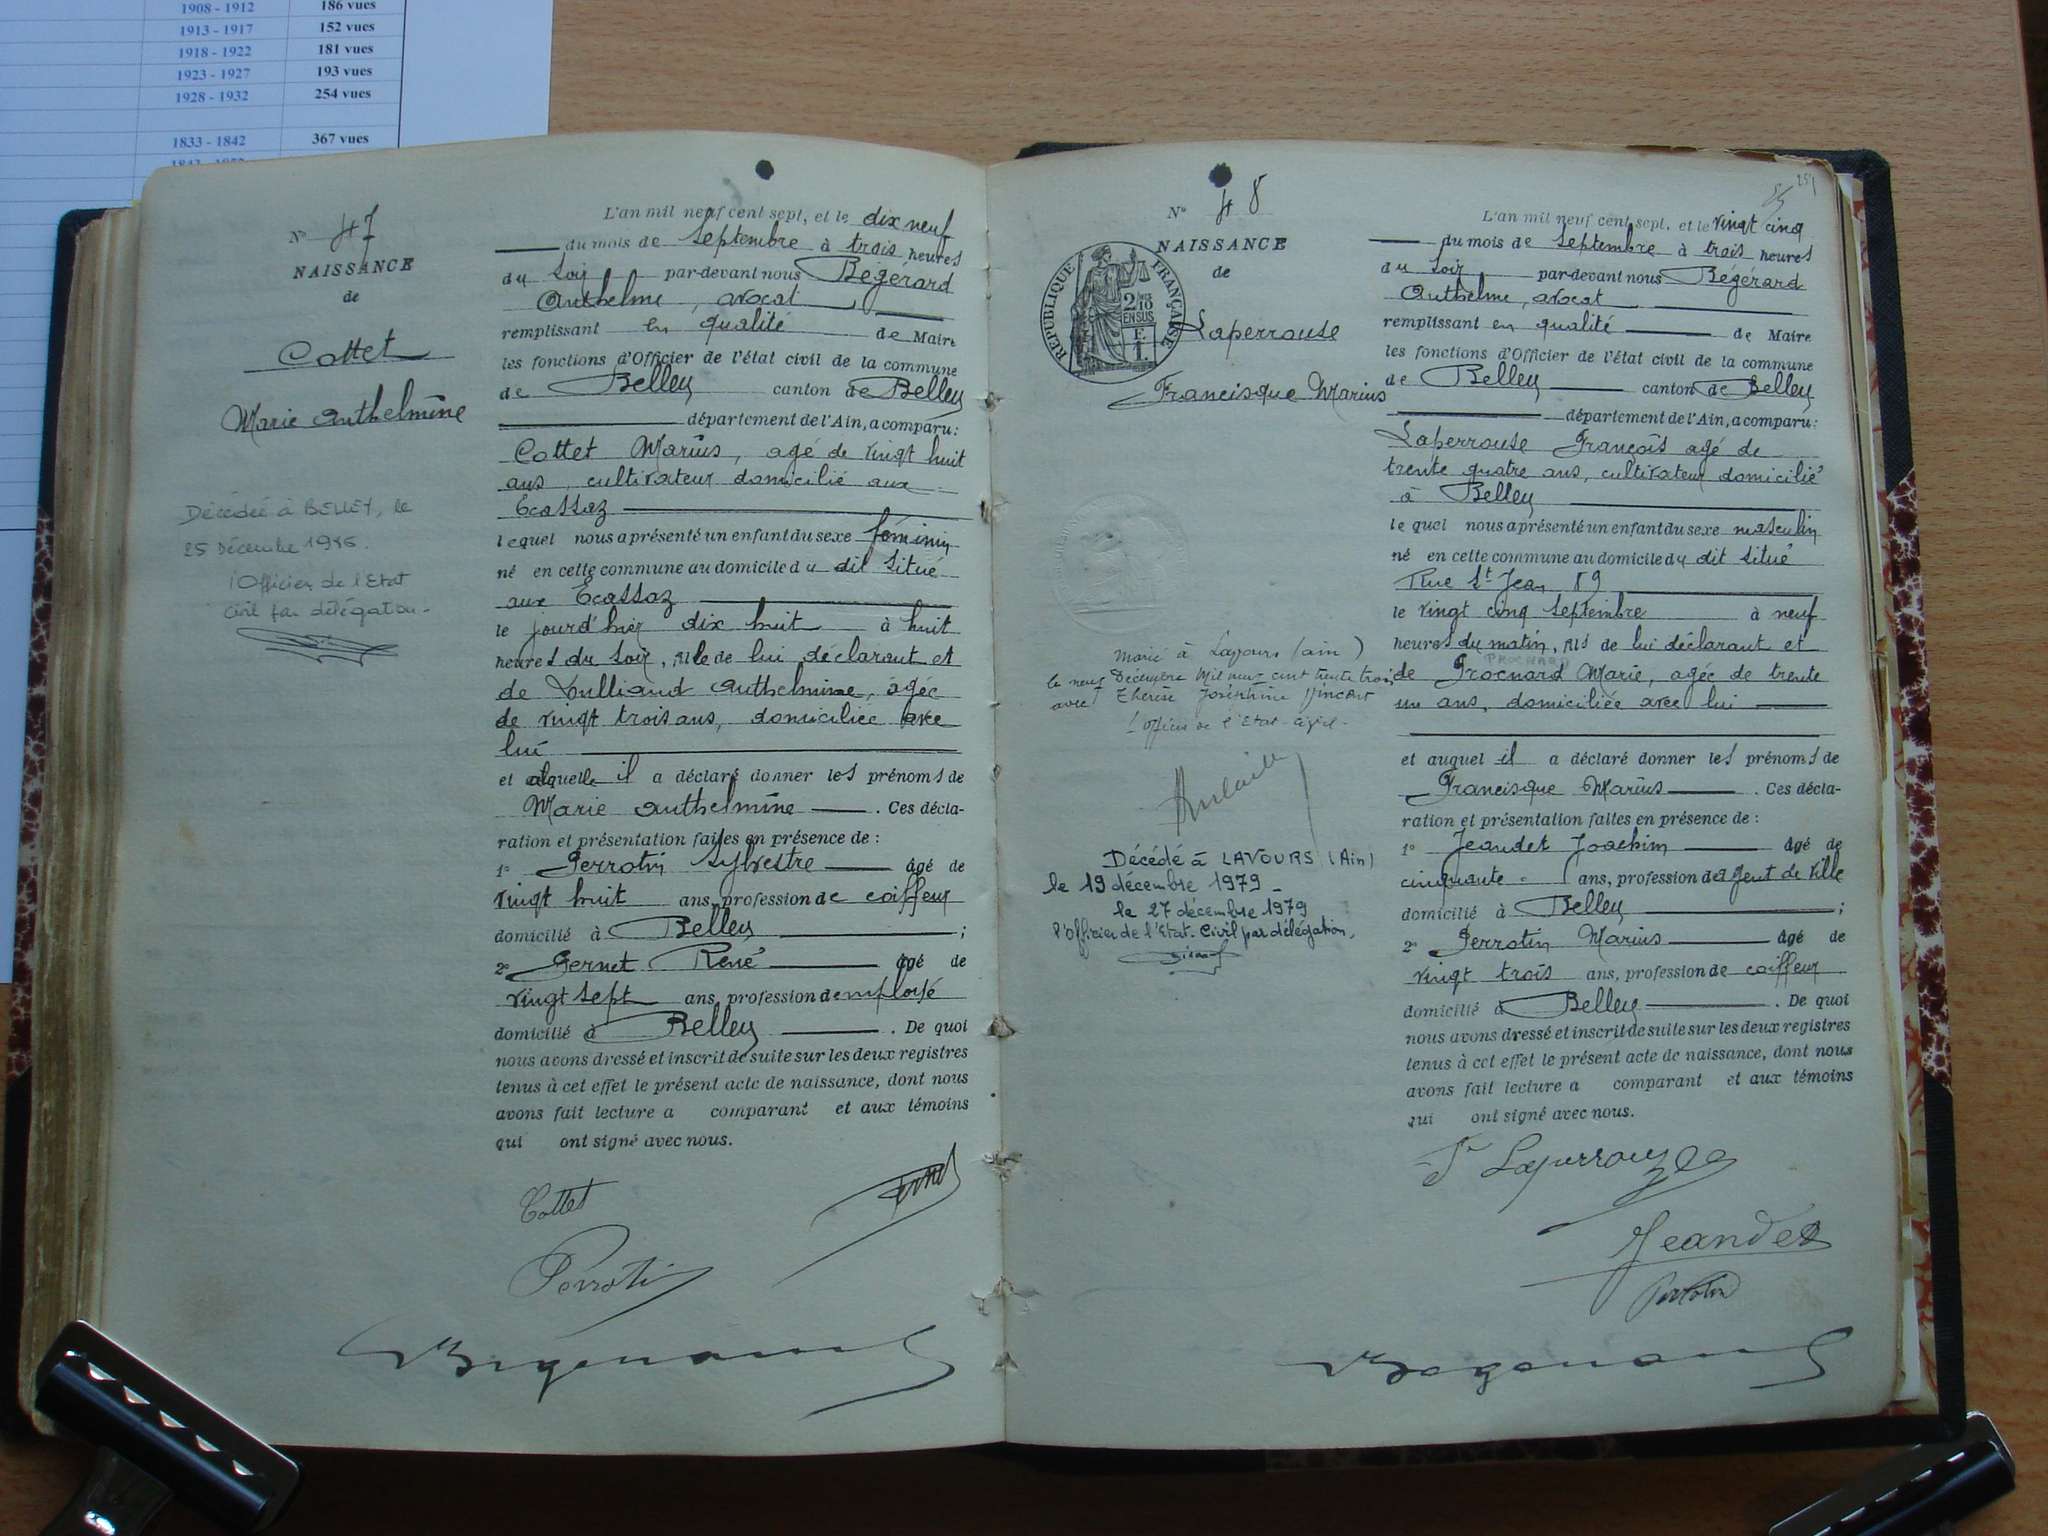 1908 - 1912 186 vues
1913 - 1917 152 vues
1918 - 1922 181 vues
1923 - 1927 193 vues
1928 - 1932 254 vues
1833 - 1842 367 vues
N° 47
NAISSANCE
de
Cottet
Marie Anthelmine
Décédée à BELLEY, le
25 Décembre 1986.
l'Officier de l'Etat
Civil par délégation.
L'an mil neuf cent sept, et le dix neuf
du mois de septembre à trois heures
du soir par-devant nous Bégérard
Anthelme, avocat
remplissant en qualité de Maire
les fonctions d'Officier de l'état civil de la commune
de Belley canton de Belley
département de l'Ain, a comparu:
Cottet Marius, agé de vingt huit
ans, cultivateur domicilié aux
Ecassaz
lequel nous a présenté un enfant du sexe féminin
né en cette commune au domicile du dit situé
aux Ecassaz
le jourd'hier dix huit à huit
heures du soir, fille de lui déclarant et
de Vulliand Anthelmine, agée
de vingt trois ans, domiciliée avec
lui
et alaquelle il a déclaré donner les prénoms de
Marie Anthelmine. Ces décla-
ration et présentation faites en présence de :
1° Perrotin Sylvestre âgé de
vingt huit ans, profession de coiffeur
domicilié à Belley ;
2° Pernet René âgé de
vingt sept ans, profession d'employé
domicilié à Belley. De quoi
nous avons dressé et inscrit de suite sur les deux registres
tenus à cet effet le présent acte de naissance, dont nous
avons fait lecture a comparant et aux témoins
qui ont signé avec nous.
Cottet
Perrotin
N° 48
NAISSANCE
de
REPUBLIQUE FRANÇAISE
2/10
EN SUS
Laperrouse
Francisque Marius
Marié à Lavours (Ain)
le neuf Décembre Mil neuf cent trente trois
avec Thérèse Joséphine Vincent
l'Officier de l'Etat-Civil.
Décédé à LAVOURS (Ain)
le 19 décembre 1979
le 27 décembre 1979
l'Officier de l'Etat-Civil par délégation,
251
L'an mil neuf cent sept, et le vingt cinq
du mois de septembre à trois heures
du soir par-devant nous Bégérard
Anthelme, avocat
remplissant en qualité de Maire
les fonctions d'Officier de l'état civil de la commune
de Belley canton de Belley
département de l'Ain, a comparu:
Laperrouse François agé de
trente quatre ans, cultivateur domicilié
à Belley
le quel nous a présenté un enfant du sexe masculin
né en cette commune au domicile du dit situé
Rue St Jean 89
le vingt cinq septembre à neuf
heures du matin, fils de lui déclarant et
PROCHARD
de Prochard Marie, agée de trente
un ans, domiciliée avec lui
et auquel il a déclaré donner les prénoms de
Francisque Marius. Ces décla-
ration et présentation faites en présence de :
1° Jeandet Joachim âgé de
cinquante ans, profession d'agent de ville
domicilié à Belley ;
2° Perrotin Marius âgé de
vingt trois ans, profession de coiffeur
domicilié à Belley. De quoi
nous avons dressé et inscrit de suite sur les deux registres
tenus à cet effet le présent acte de naissance, dont nous
avons fait lecture a comparant et aux témoins
qui ont signé avec nous.
F Laperrouze
Jeandet
Perrotin